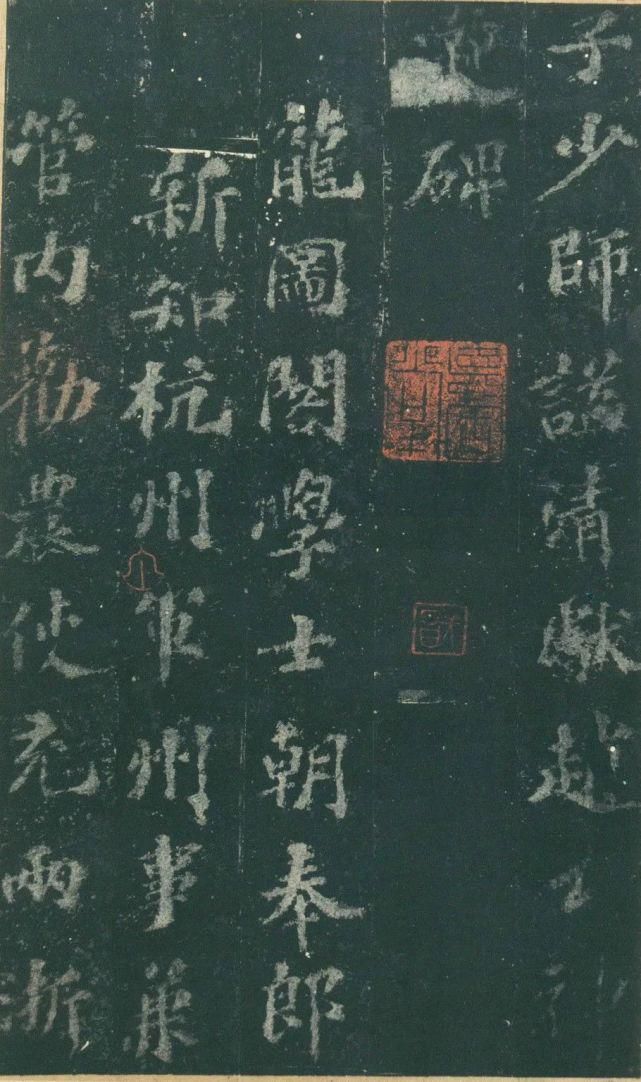 子少師謚清獻趙公神
道碑
龍圖閣學士朝奉郎
新知杭州軍州事兼
管內勸農使充兩浙